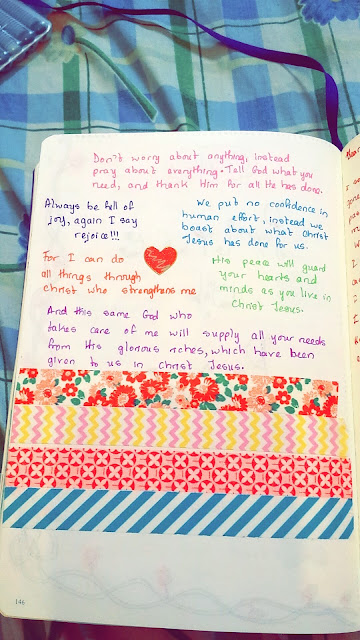 Don't worry about anything, instead
pray about everything. Tell God what you
need, and thank Him for all He has done.
Always be full of
joy, again I say
rejoice!!!
We put no confidence in
human effort, instead we
boast about what Christ
Jesus has done for us.
For I can do
all things through
Christ who strengthens me
His peace will guard
your hearts and
minds as you live in
Christ Jesus.
And this same God who
takes care of me will supply all your needs
from His glorious riches, which have been
given to us in Christ Jesus.
146